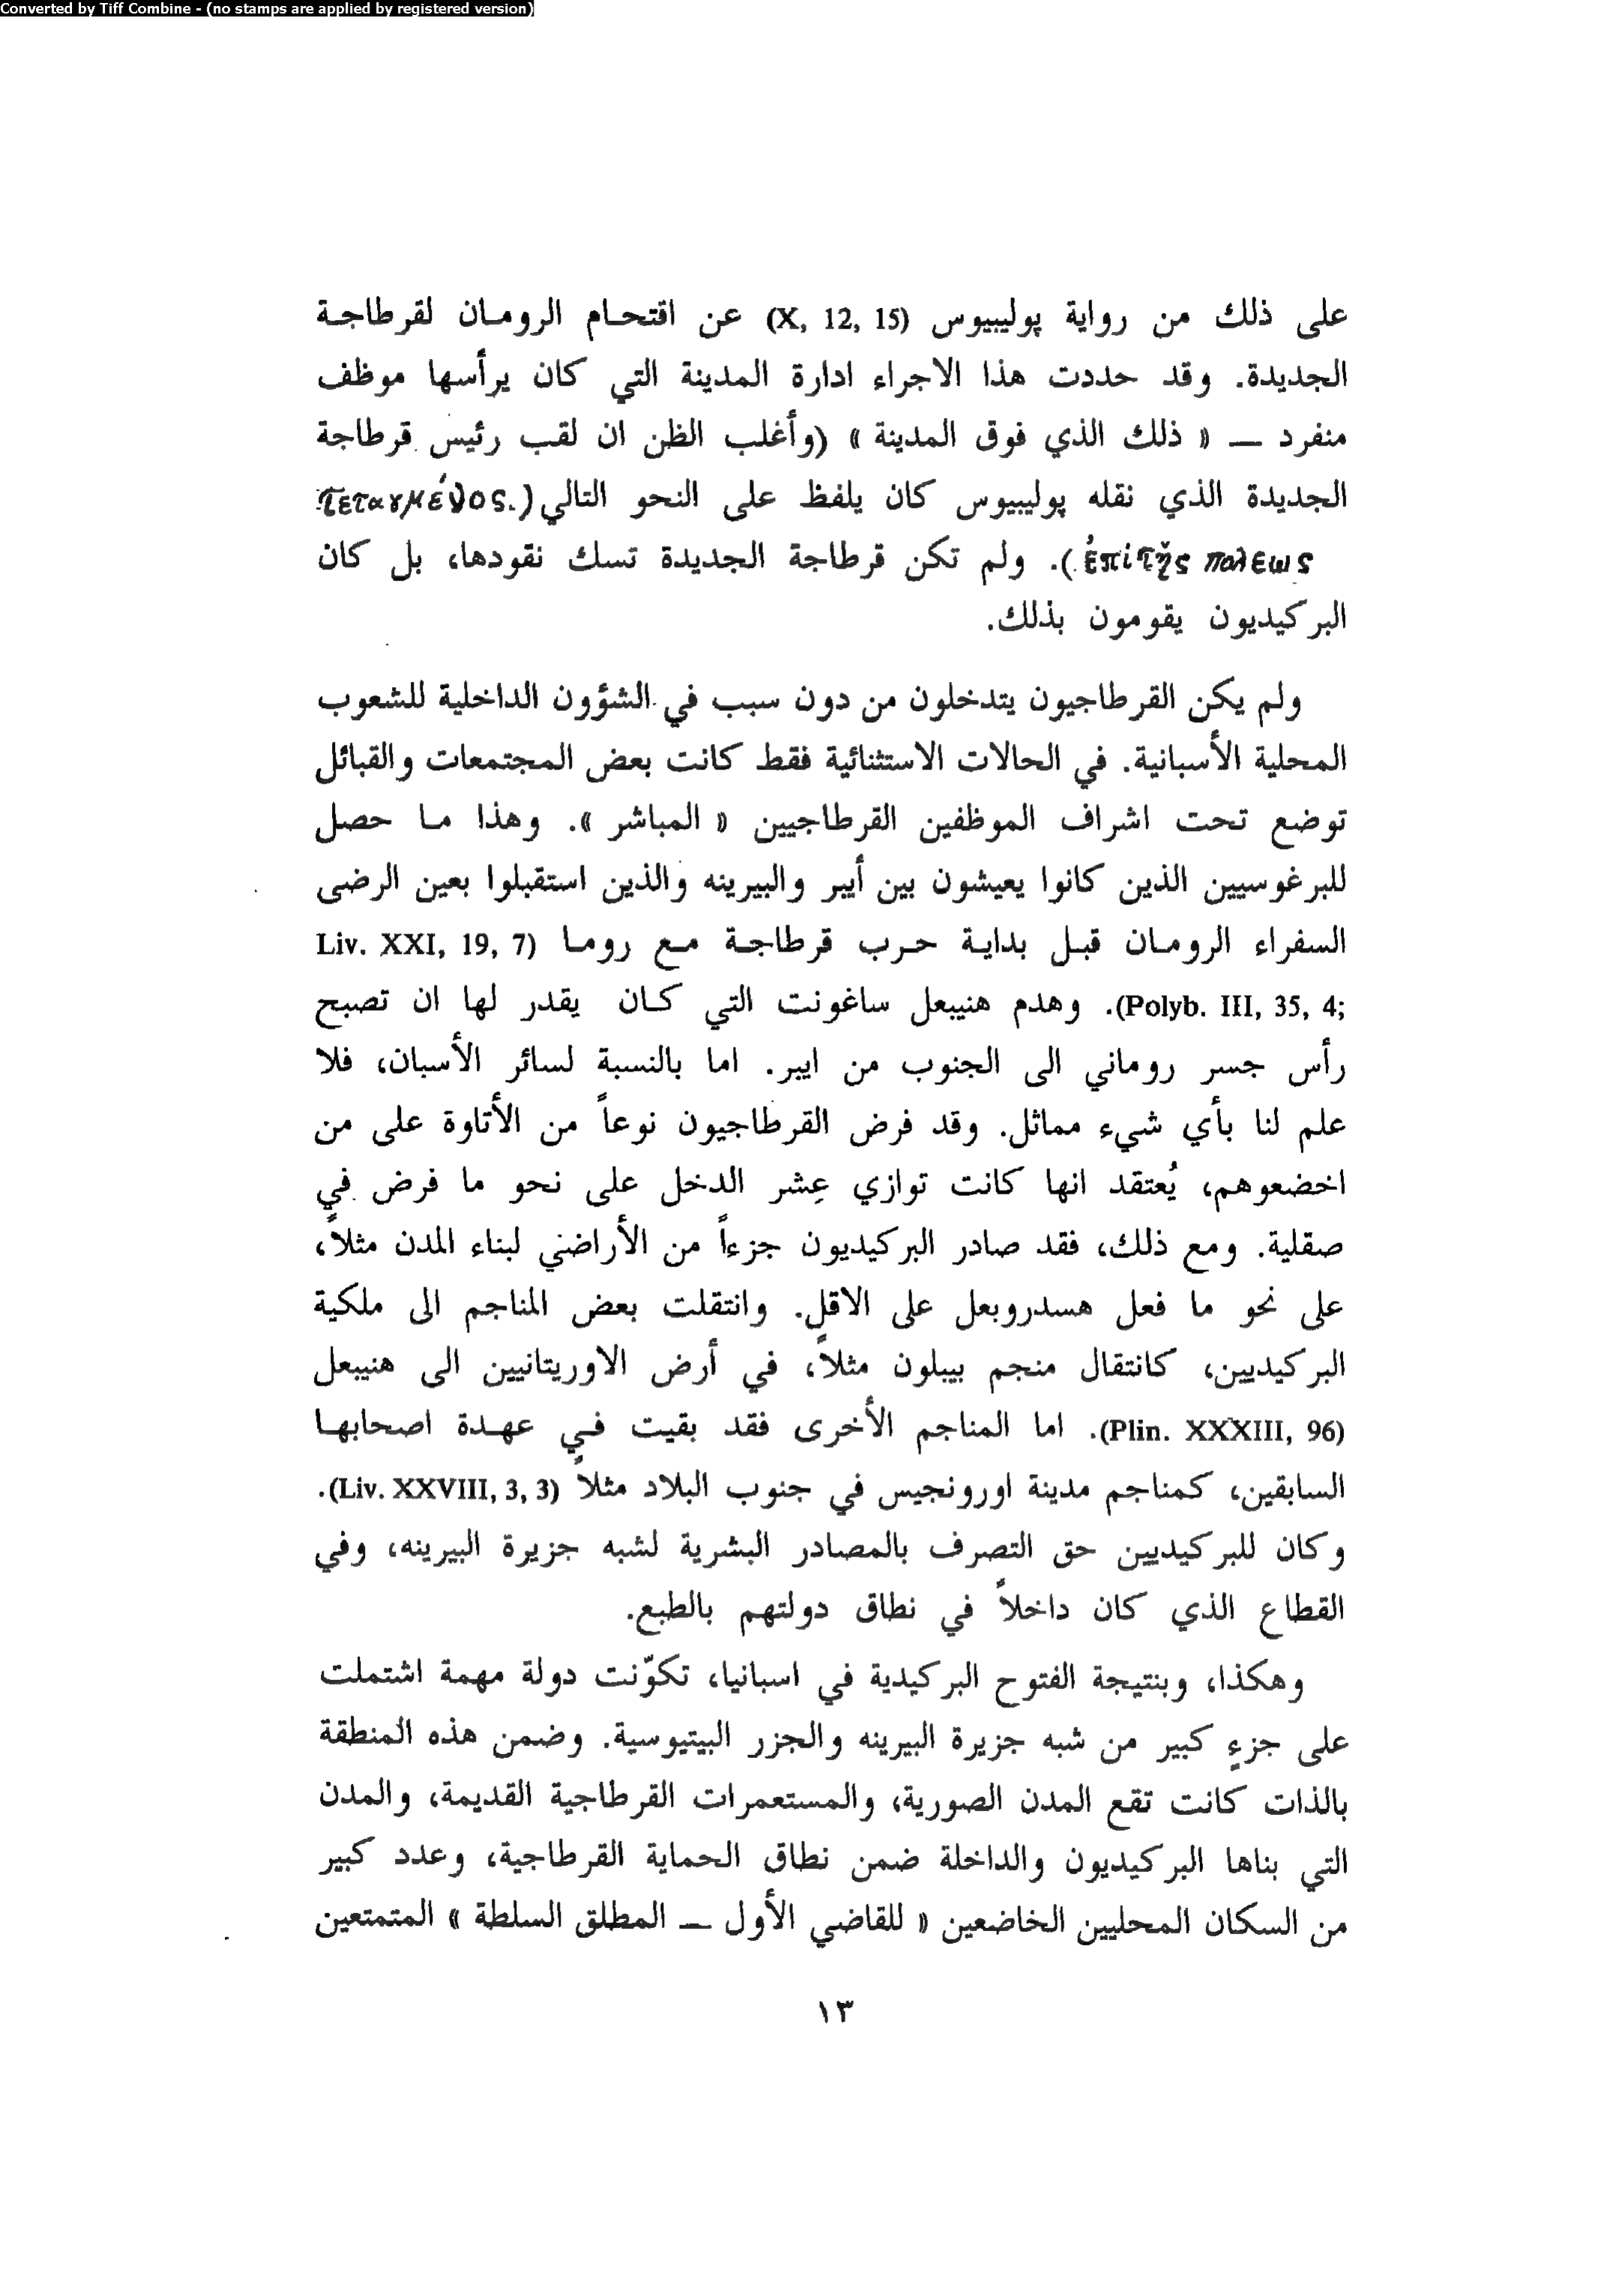 Converted by Tiff Combine - (no stamps are applied by registered version)
على ذلك من رواية پوليبيوس (X, 12, 15) عن اقتحام الرومان لقرطاجة
الجديدة. وقد حددت هذا الاجراء ادارة المدينة التي كان يرأسها موظف
منفرد — « ذلك الذي فوق المدينة » (وأغلب الظن ان لقب رئيس قرطاجة
الجديدة الذي نقله پوليبيوس كان يلفظ على النحو التالي (τεταγμένος.
ἐπί τῆς πολεως). ولم تكن قرطاجة الجديدة تسك نقودها، بل كان
البركيديون يقومون بذلك.
ولم يكن القرطاجيون يتدخلون من دون سبب في الشؤون الداخلية للشعوب
المحلية الأسبانية. في الحالات الاستثنائية فقط كانت بعض المجتمعات والقبائل
توضع تحت اشراف الموظفين القرطاجيين « المباشر ». وهذا ما حصل
للبرغوسيين الذين كانوا يعيشون بين أيبر والبيرينه والذين استقبلوا بعين الرضى
السفراء الرومان قبل بداية حرب قرطاجة مع روما (Liv. XXI, 19, 7
;Polyb. III, 35, 4). وهدم هنيبعل ساغونت التي كان يقدر لها ان تصبح
رأس جسر روماني الى الجنوب من ايبر. اما بالنسبة لسائر الأسبان، فلا
علم لنا بأي شيء مماثل. وقد فرض القرطاجيون نوعاً من الأتاوة على من
اخضعوهم، يُعتقد انها كانت توازي عِشر الدخل على نحو ما فرض في
صقلية. ومع ذلك، فقد صادر البركيديون جزءاً من الأراضي لبناء المدن مثلاً،
على نحو ما فعل هسدروبعل على الاقل. وانتقلت بعض المناجم الى ملكية
البركيديين، كانتقال منجم بيبلون مثلاً، في أرض الاوريتانيين الى هنيبعل
(Plin. XXXIII, 96). اما المناجم الأخرى فقد بقيت في عهدة اصحابها
السابقين، كمناجم مدينة اورونجيس في جنوب البلاد مثلاً (Liv. XXVIII, 3, 3).
وكان للبركيديين حق التصرف بالمصادر البشرية لشبه جزيرة البيرينه، وفي
القطاع الذي كان داخلاً في نطاق دولتهم بالطبع.
وهكذا، وبنتيجة الفتوح البركيدية في اسبانيا، تكوّنت دولة مهمة اشتملت
على جزءٍ كبير من شبه جزيرة البيرينه والجزر البيتيوسية. وضمن هذه المنطقة
بالذات كانت تقع المدن الصورية، والمستعمرات القرطاجية القديمة، والمدن
التي بناها البركيديون والداخلة ضمن نطاق الحماية القرطاجية، وعدد كبير
من السكان المحليين الخاضعين « للقاضي الأول — المطلق السلطة » المتمتعين
١٣